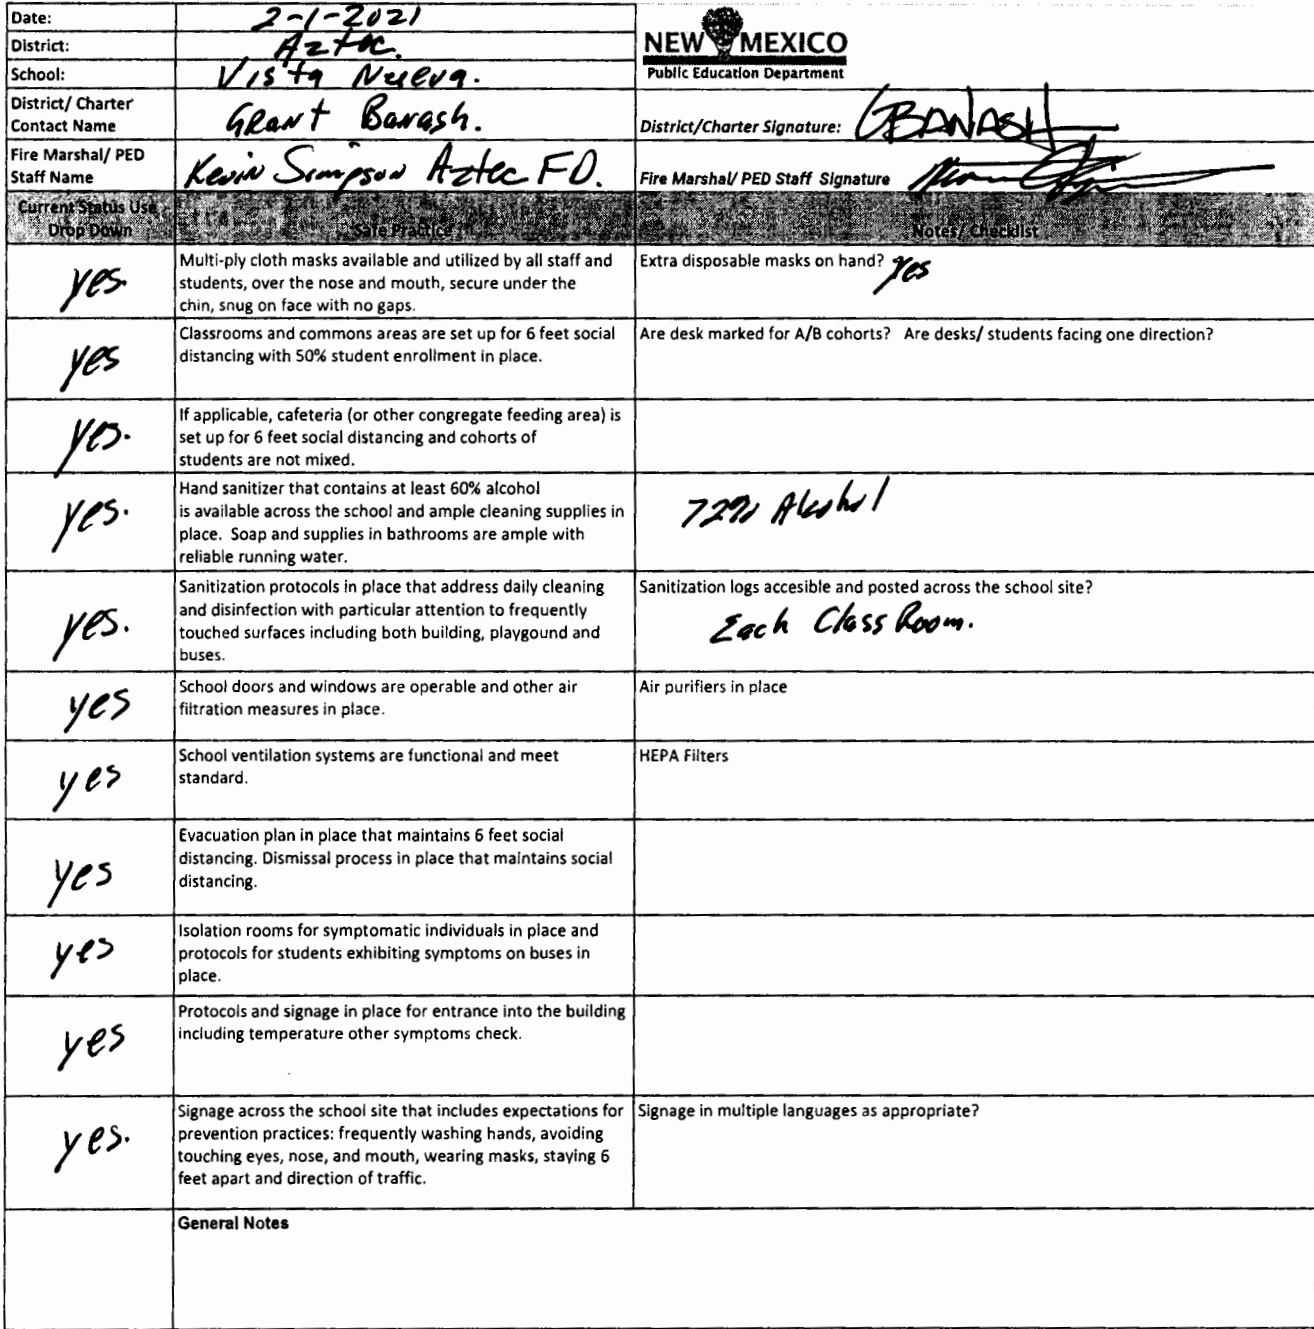 Date: 2-1-2021
District: Aztec.
School: Vista Nueva.
NEW MEXICO
Public Education Department
District/ Charter
Contact Name Grant Banash.
District/Charter Signature: GBANASH
Fire Marshal/ PED
Staff Name Kevin Simpson Aztec FD.
Fire Marshal/ PED Staff Signature
Current Status Use
Drop Down
Safe Practice
Notes/ Checklist
yes.
Multi-ply cloth masks available and utilized by all staff and
students, over the nose and mouth, secure under the
chin, snug on face with no gaps.
Extra disposable masks on hand? yes
yes
Classrooms and commons areas are set up for 6 feet social
distancing with 50% student enrollment in place.
Are desk marked for A/B cohorts? Are desks/ students facing one direction?
yes.
If applicable, cafeteria (or other congregate feeding area) is
set up for 6 feet social distancing and cohorts of
students are not mixed.
yes.
Hand sanitizer that contains at least 60% alcohol
is available across the school and ample cleaning supplies in
place. Soap and supplies in bathrooms are ample with
reliable running water.
72% Alcohol
yes.
Sanitization protocols in place that address daily cleaning
and disinfection with particular attention to frequently
touched surfaces including both building, playgound and
buses.
Sanitization logs accesible and posted across the school site?
Each Class Room.
yes
School doors and windows are operable and other air
filtration measures in place.
Air purifiers in place
yes
School ventilation systems are functional and meet
standard.
HEPA Filters
yes
Evacuation plan in place that maintains 6 feet social
distancing. Dismissal process in place that maintains social
distancing.
yes
Isolation rooms for symptomatic individuals in place and
protocols for students exhibiting symptoms on buses in
place.
yes
Protocols and signage in place for entrance into the building
including temperature other symptoms check.
yes.
Signage across the school site that includes expectations for
prevention practices: frequently washing hands, avoiding
touching eyes, nose, and mouth, wearing masks, staying 6
feet apart and direction of traffic.
Signage in multiple languages as appropriate?
General Notes